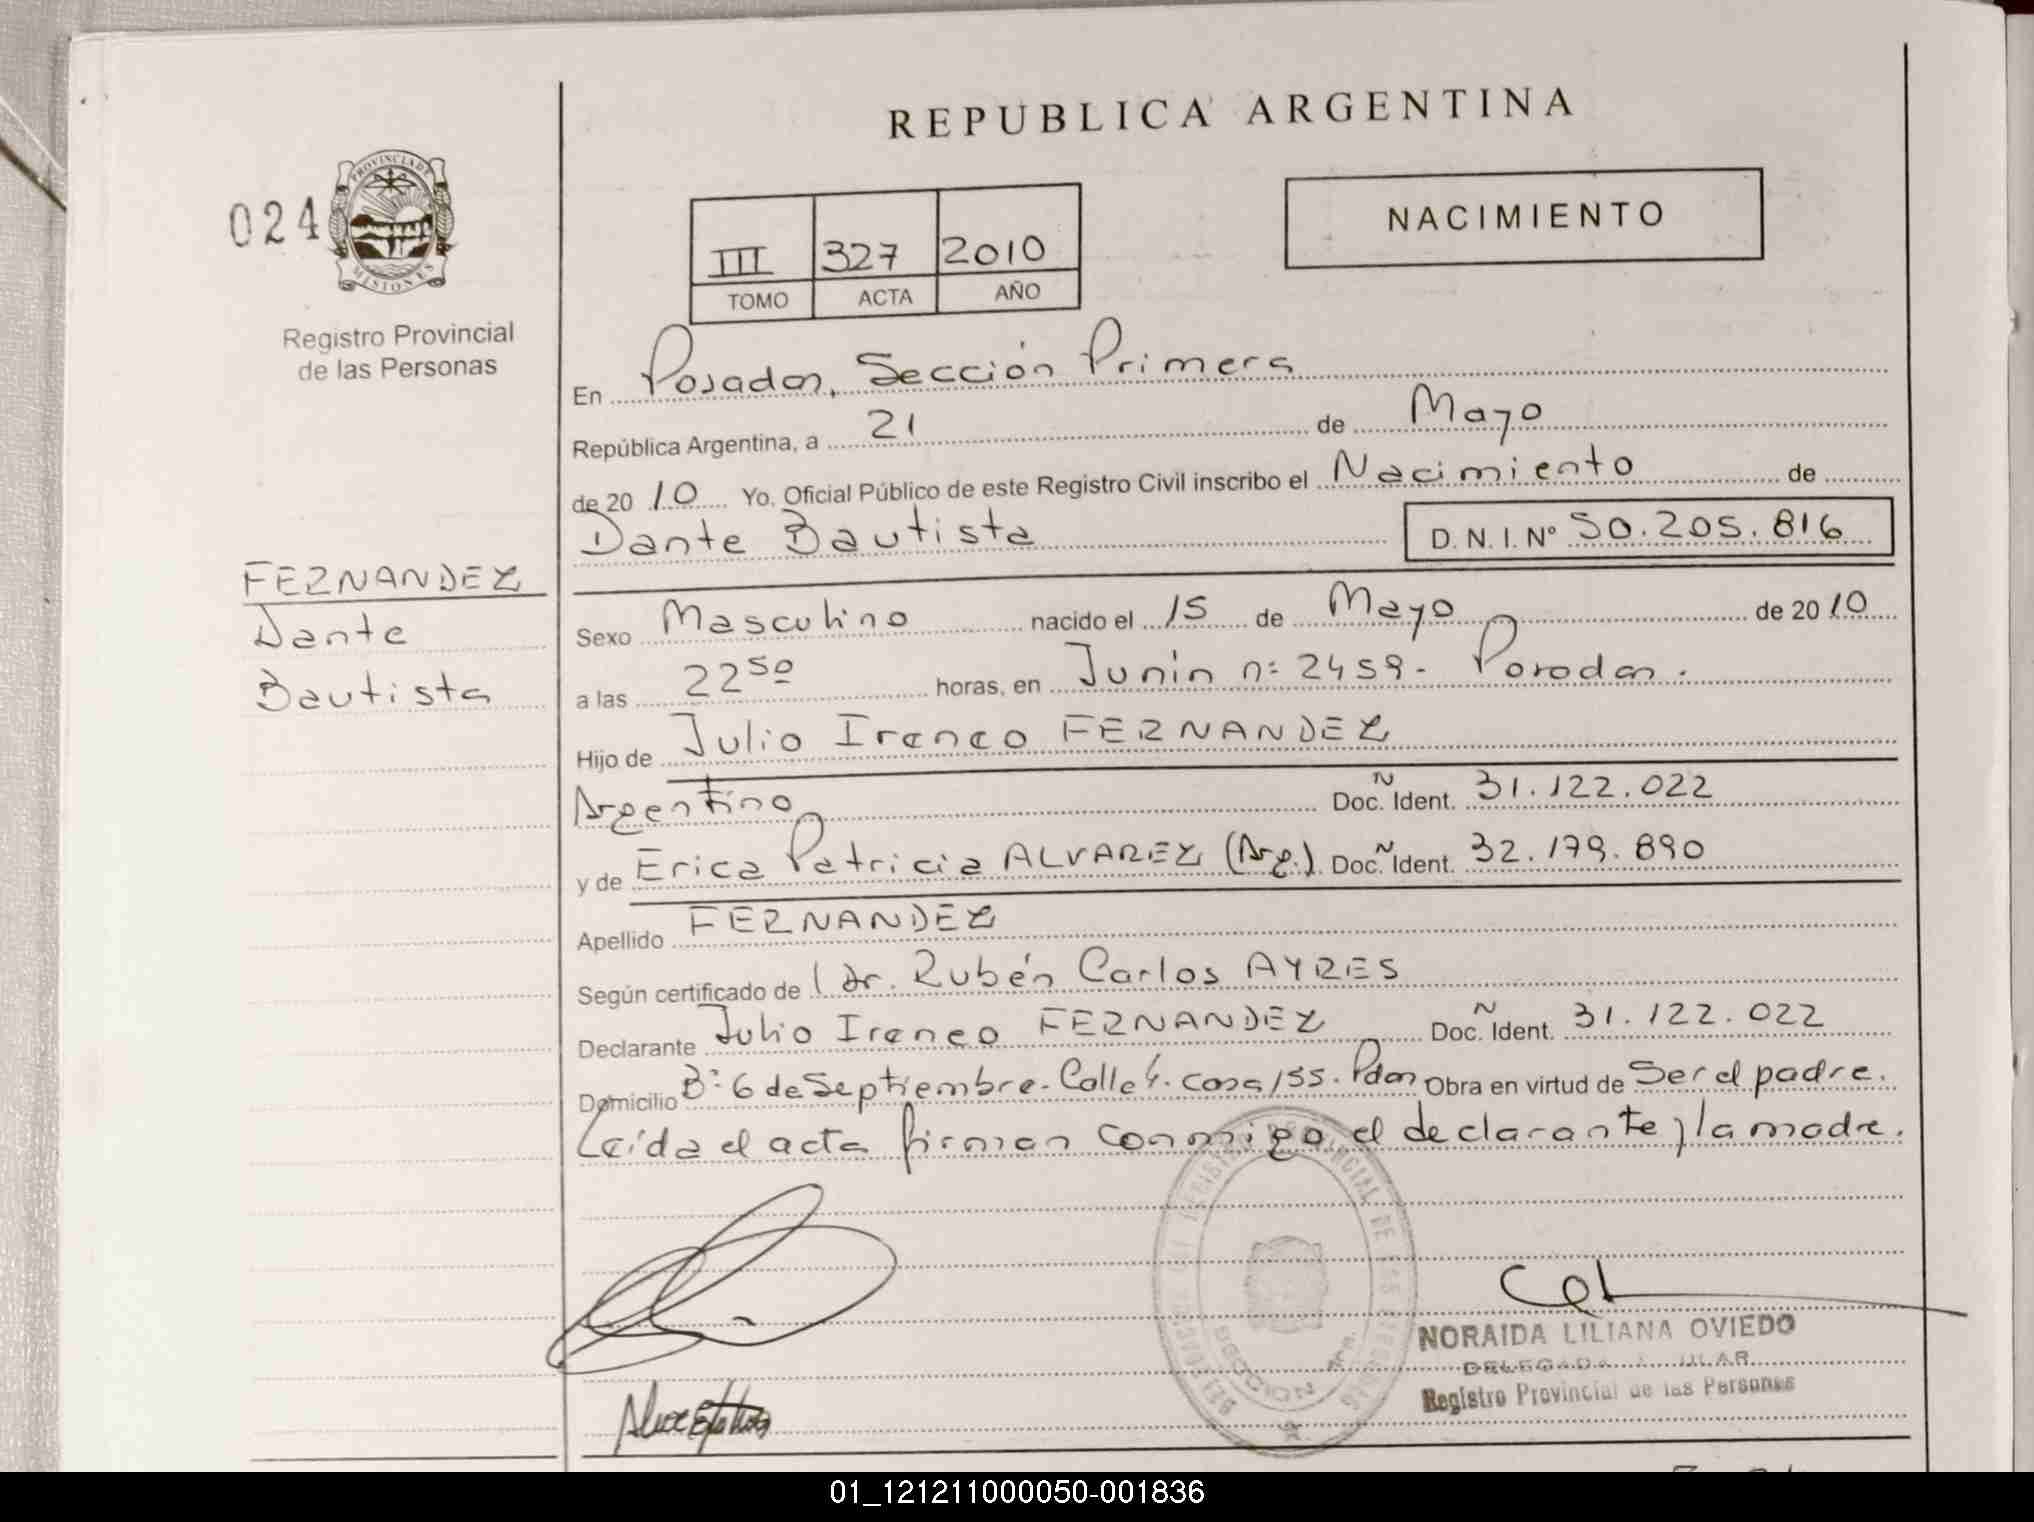 REPUBLICA ARGENTINA
024
PROVINCIA DE
MISIONES
Registro Provincial
de las Personas
III 327 2010
TOMO ACTA AÑO
NACIMIENTO
En Posadas, Sección Primera
República Argentina, a 21 de Mayo
de 2010 Yo, Oficial Público de este Registro Civil inscribo el Nacimiento de
Dante Bautista D. N. I. Nº 50.205.816
FERNANDEZ
Dante
Bautista
Sexo Masculino nacido el 15 de Mayo de 2010
a las 22 50 horas, en Junin nº 2459- Posadas.
Hijo de Julio Ireneo FERNANDEZ
Argentino Doc. Ident. 31.122.022
y de Erica Patricia ALVAREZ (Arg.) Doc. Ident. 32.179.890
Apellido FERNANDEZ
Según certificado de l Dr. Rubén Carlos AYRES
Declarante Julio Ireneo FERNANDEZ Doc. Ident. 31.122.022
Domicilio Bº 6 de Septiembre- Calle 4. casa 155. Pdas Obra en virtud de Ser el padre.
Leída el acta firman conmigo el declarante y la madre.
NORAIDA LILIANA OVIEDO
DELEGADA
Registro Provincial de las Personas
01_121211000050-001836